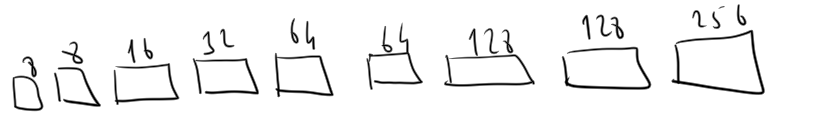 8 8 16 32 64 64 128 128 256